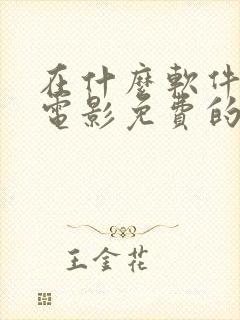 在什麼軟件
電影免費的
王金花